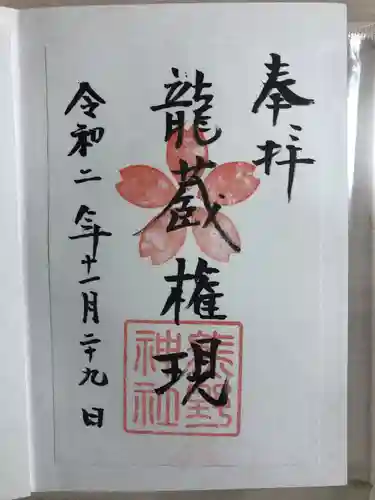 奉拝
龍蔵権現
熊野
神社
令和二年十一月二十九日